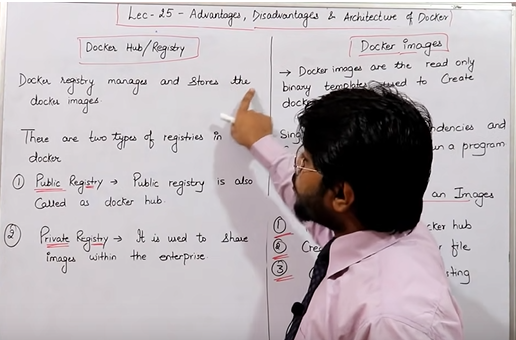 Lec-25 - Advantages, Disadvantages & Architecture of Docker
Docker Hub/Registry
Docker registry manages and stores the
docker images
There are two types of registries in
docker
① Public Registry → Public registry is also
Called as docker hub.
② Private Registry → It is used to share
images within the enterprise.
Docker images
→ Docker images are the read only
binary templates used to Create
dock
Sing
ndencies and
un a program
an Images
①
cker hub
② Crea
file
③
sting